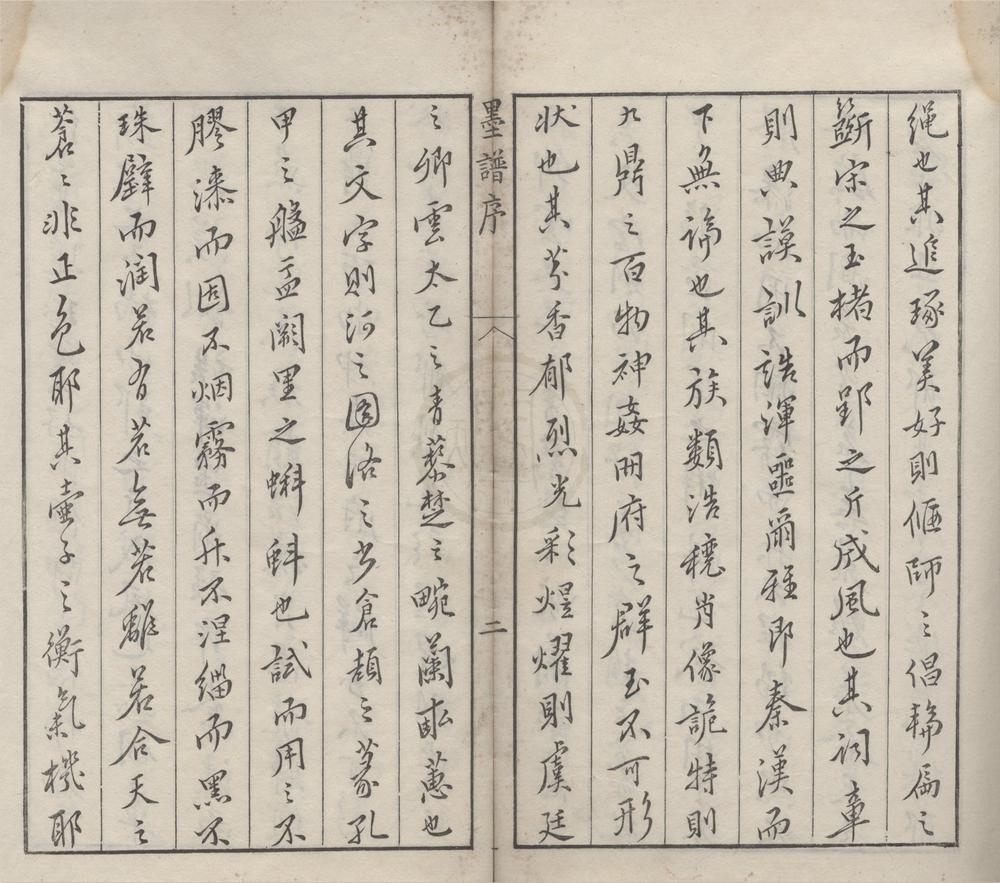 繩也其追琢美好則偃師之倡輪扁之
斵宋之玉楮而郢之斤成風也其詞章
則典謨訓誥渾噩爾雅即秦漢而
下無論也其族類浩穰肖像詭特則
九鼎之百物神姦冊府之群玉不可形
狀也其芬香郁烈光彩熀耀則虞廷
墨譜序
二
之卿雲太乙之青藜楚之畹蘭畝蕙也
其文字則河之圖洛之書倉頡之篆孔
甲之盤盂闕里之蝌蚪也試而用之不
膠漆而固不烟霧而升不涅緇而黑不
珠璧而潤若有若無若離若合天之
蒼〻非正色耶其壺子之衡氣機耶